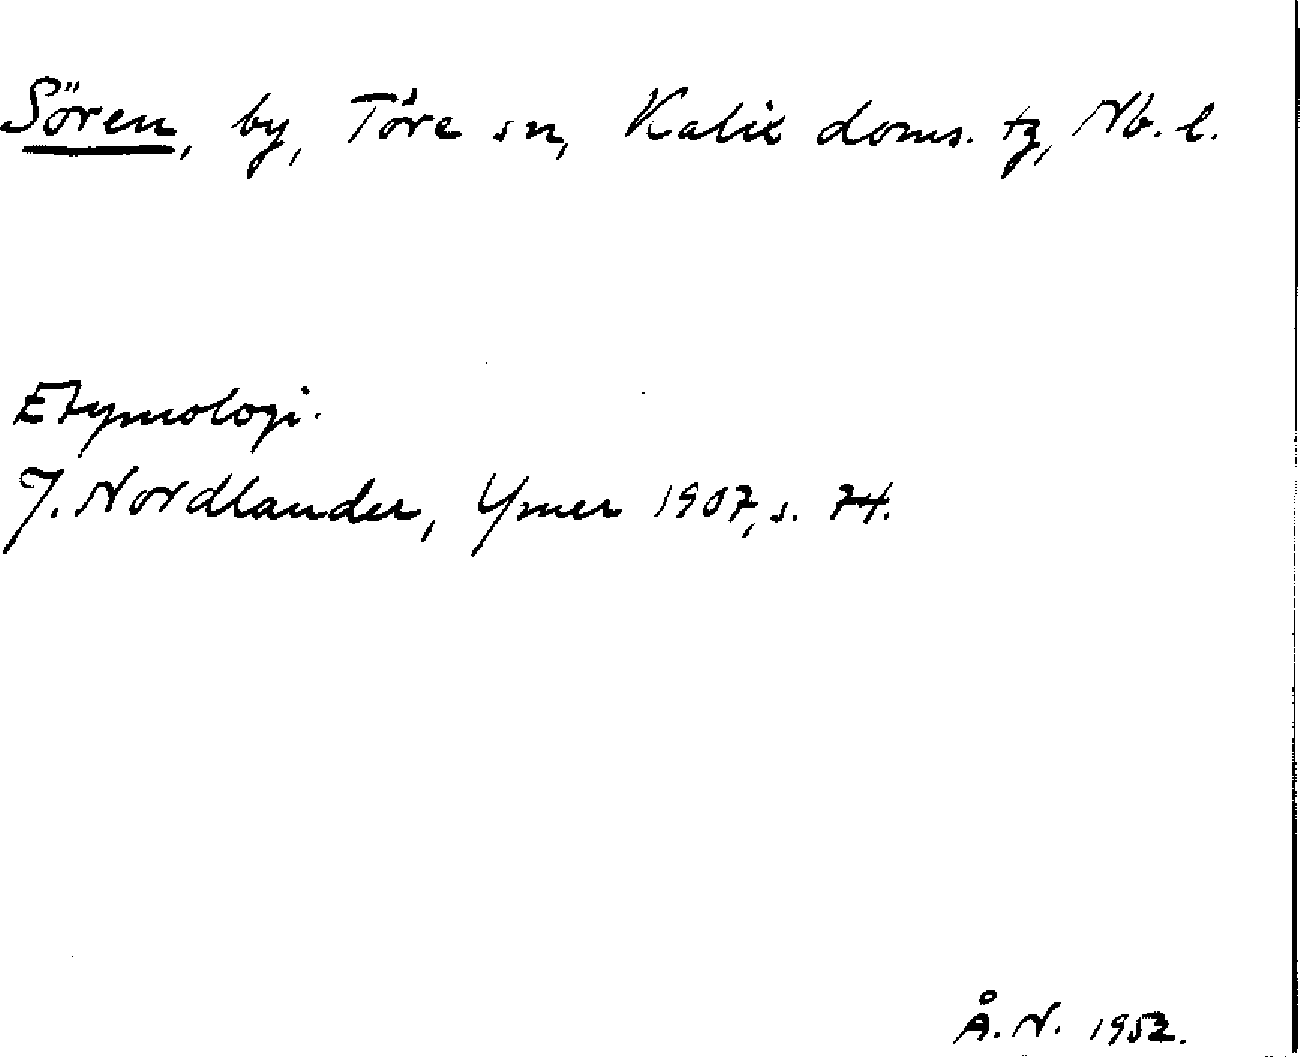 Sören, by, Töre sn, Kalix doms. tg, Nb. l.
Etymologi.
J. Nordlander, Ymer 1907, s. 74.
Å. N. 1952.